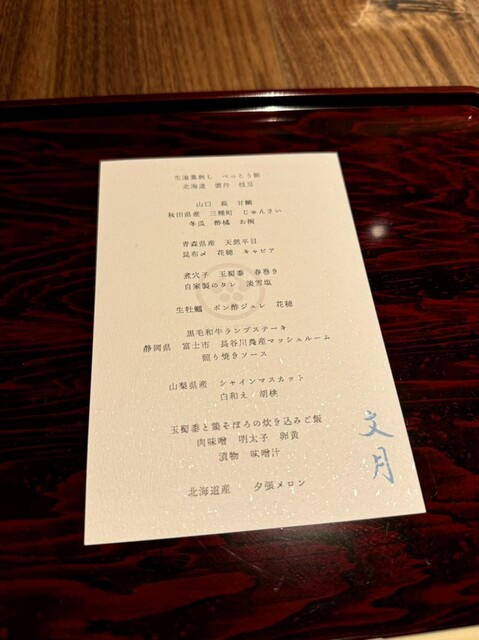 生湯葉刺し べっとう飴
北海道 雲丹 枝豆
山口 萩 甘鯛
秋田県産 三種町 じゅんさい
冬瓜 酢橘 お椀
青森県産 天然平目
昆布〆 花穂 キャビア
煮穴子 玉蜀黍 春巻き
自家製のタレ 淡雪塩
生牡蠣 ポン酢ジュレ 花穂
黒毛和牛ランプステーキ
静岡県 富士市 長谷川農産マッシュルーム
照り焼きソース
山梨県産 シャインマスカット
白和え 胡桃
玉蜀黍と鶏そぼろの炊き込みご飯
肉味噌 明太子 卵黄
漬物 味噌汁
北海道産 夕張メロン
文月